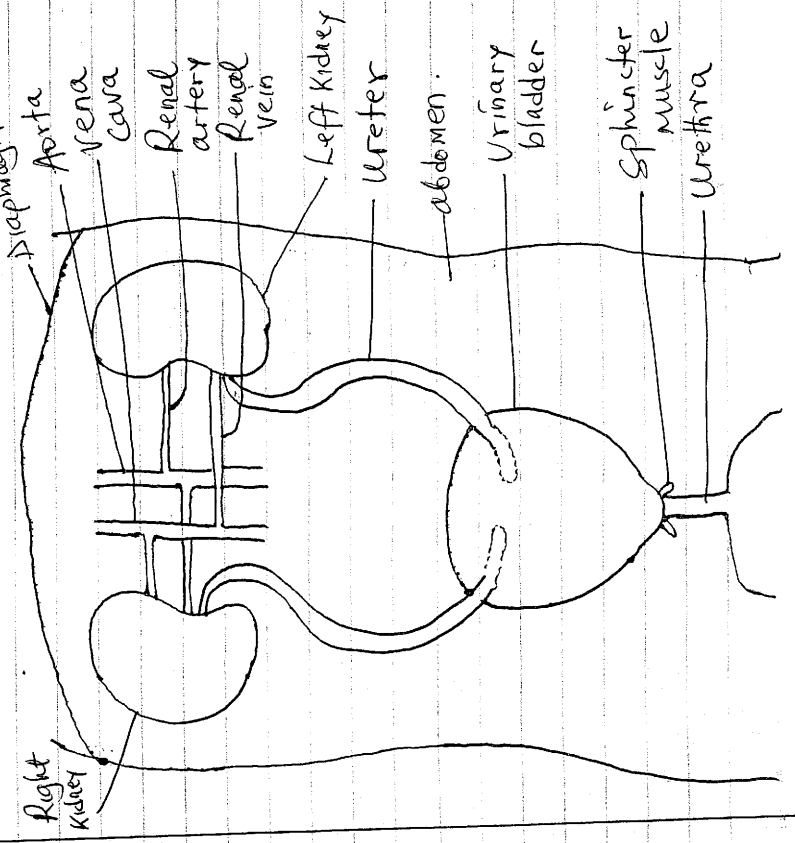 Diaphragm
Aorta
Vena
Cava
Renal
artery
Renal
Vein
Left Kidney
Ureter
abdomen.
Urinary
bladder
Sphincter
Muscle
Urethra
Right
Kidney